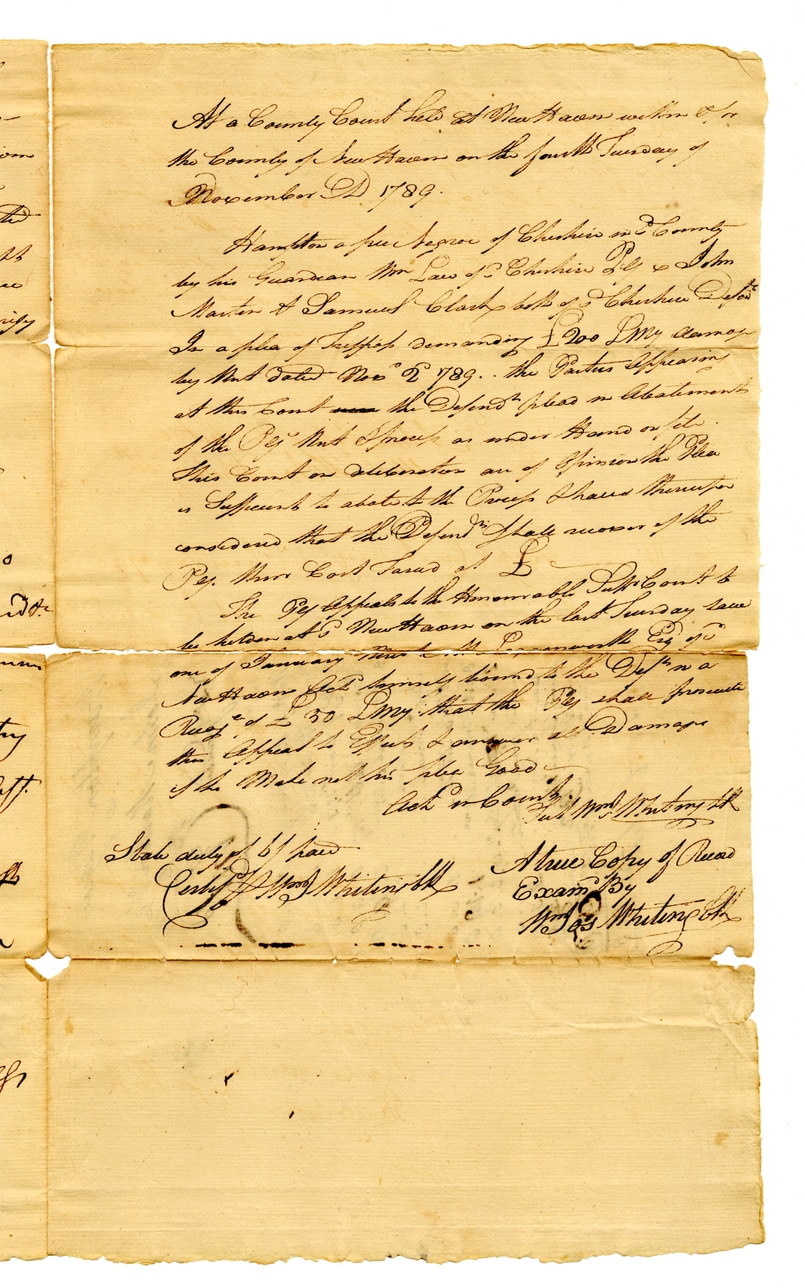 At a County Court held at New Haven within & for
the County of New Haven on the fourth Tuesday of
November AD 1789.
Hampton a free Negroe of Cheshire in sd County
by his Guardian Wm Law of sd Cheshire Plf & John
Martin & Samuel Clark both of sd Cheshire Defendts
In a plea of Trespass demanding £200 LMy damage
by Writ dated Novr 2d 1789.. the Parties Appearing
at this Court the Defendts plead in Abatement
of the Plfs Writ & process as under Hand on file.
This Court on deliberation are of Opinion the Plea
is Sufficient to abate the Process & have thereupon
considered that the Defendts shall recover of the
Plf. their Cost Taxed at £
The Plf Appeals to the Honourable Supr Court to
be holden at sd New Haven on the last Tuesday save
one of January Esqr of sd
New Haven Ackd himself bound to the Defts in a
Recogce of £30 LMy that the Plf shall prosecute
this Appeal to Effect & answer all Damage
if he Make not his plea Good
Ackd in Court
Test Wm Jos Whiting Clk
State duty of 6/ paid
Certifd pr Wm Jos Whiting Clk
A true Copy of Record
Examd By
Wm Jos Whiting Clk